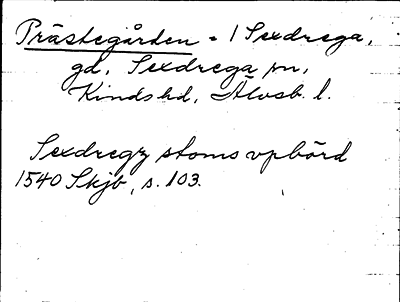 Prästegården = 1 Sexdrega,
gd, Sexdrega sn,
Kinds hd, Älvsb. l.
Sexdregz stoms vpbörd
1540 Skjb, s. 103.